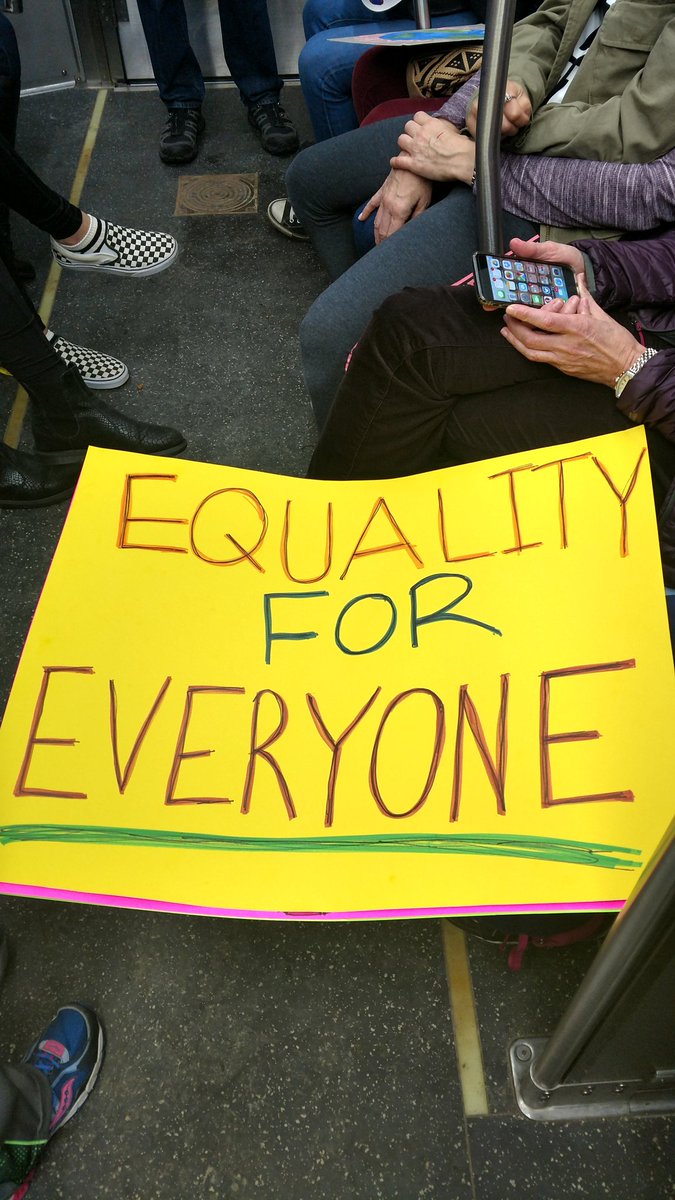 EQUALITY
FOR
EVERYONE